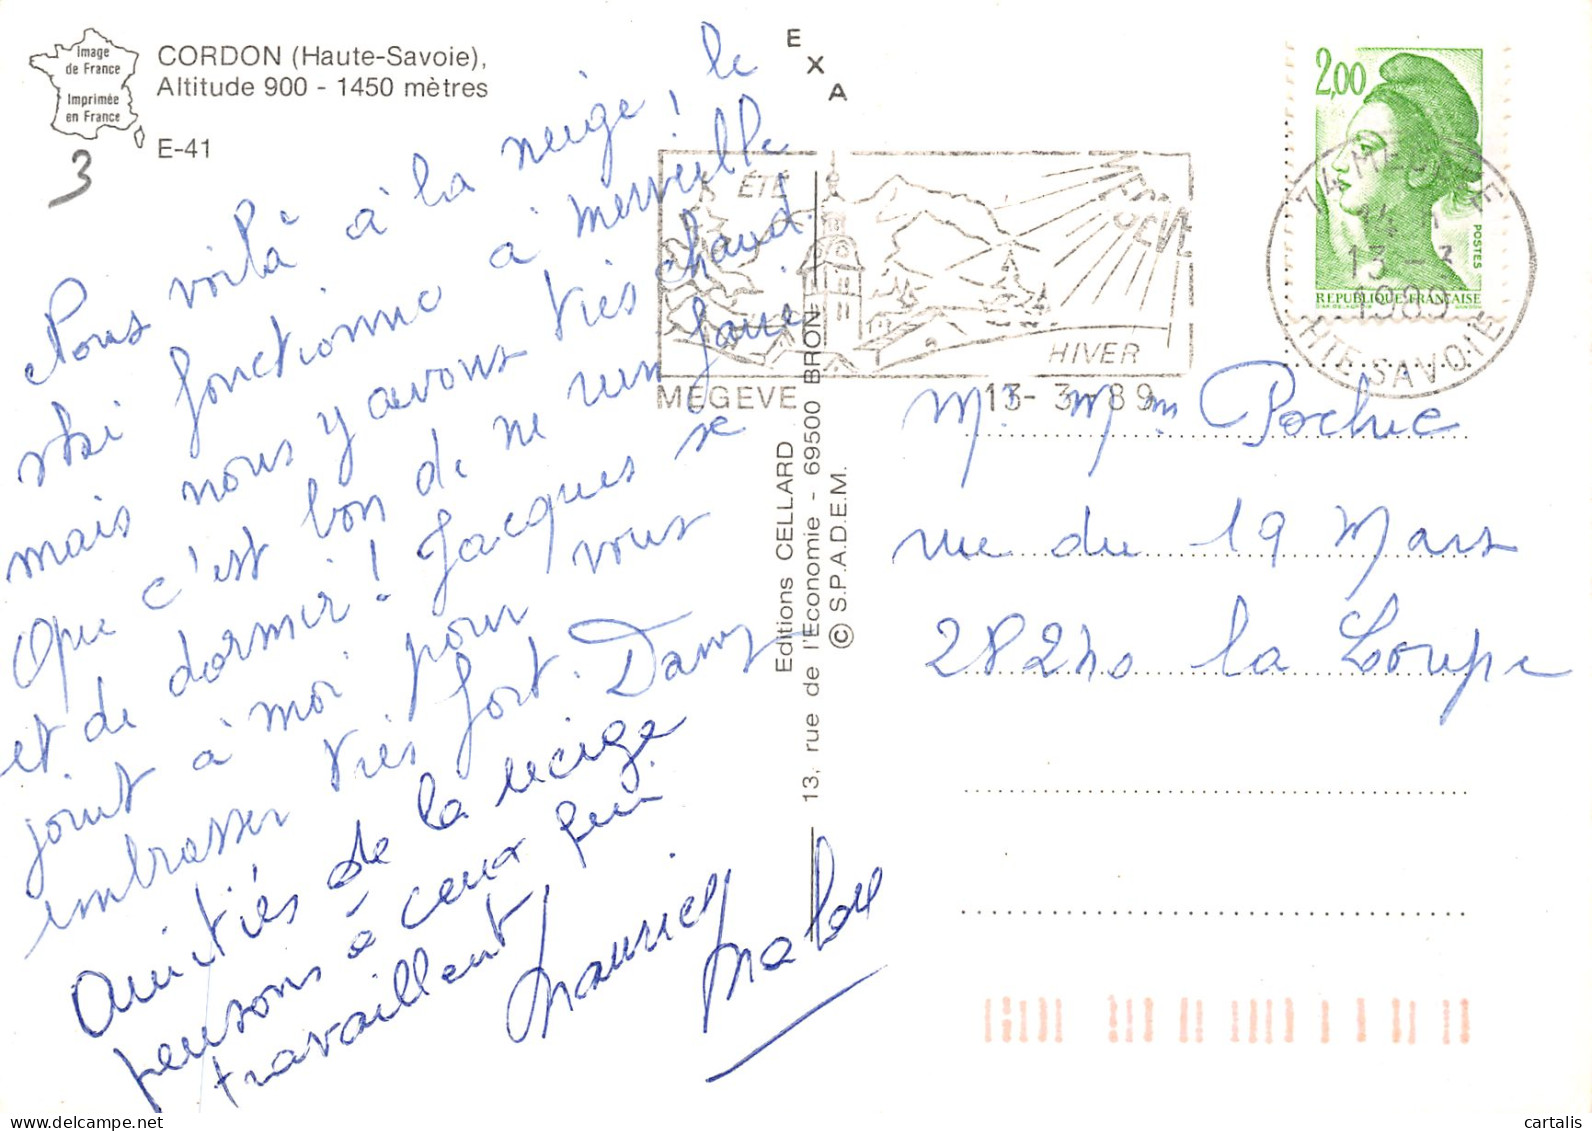 Image
de France
Imprimée
en France
CORDON (Haute-Savoie),
Altitude 900 - 1450 mètres
E-41
3
EXA
Nous voilà à la neige ! le
ski fonctionne à merveille
mais nous y avons très chaud.
Que c'est bon de ne rien faire
et de dormir ! Jacques se
joint à moi pour vous
embrasser très fort. Dany
Amitiés de la neige
pensons à ceux qui
travaillent
Maurice
Editions CELLARD
13, rue de l'Economie - 69500 BRON
© S.P.A.D.E.M.
ÉTÉ
MEGEVE
HIVER
MEGEVE 13-3-89
2,00
POSTES
REPUBLIQUE FRANÇAISE
74 MEGEVE
13-3
1989
HTE-SAVOIE
Mr Mme Pochic
rue du 19 Mars
28240 la Loupe
delcampe.net
cartalis